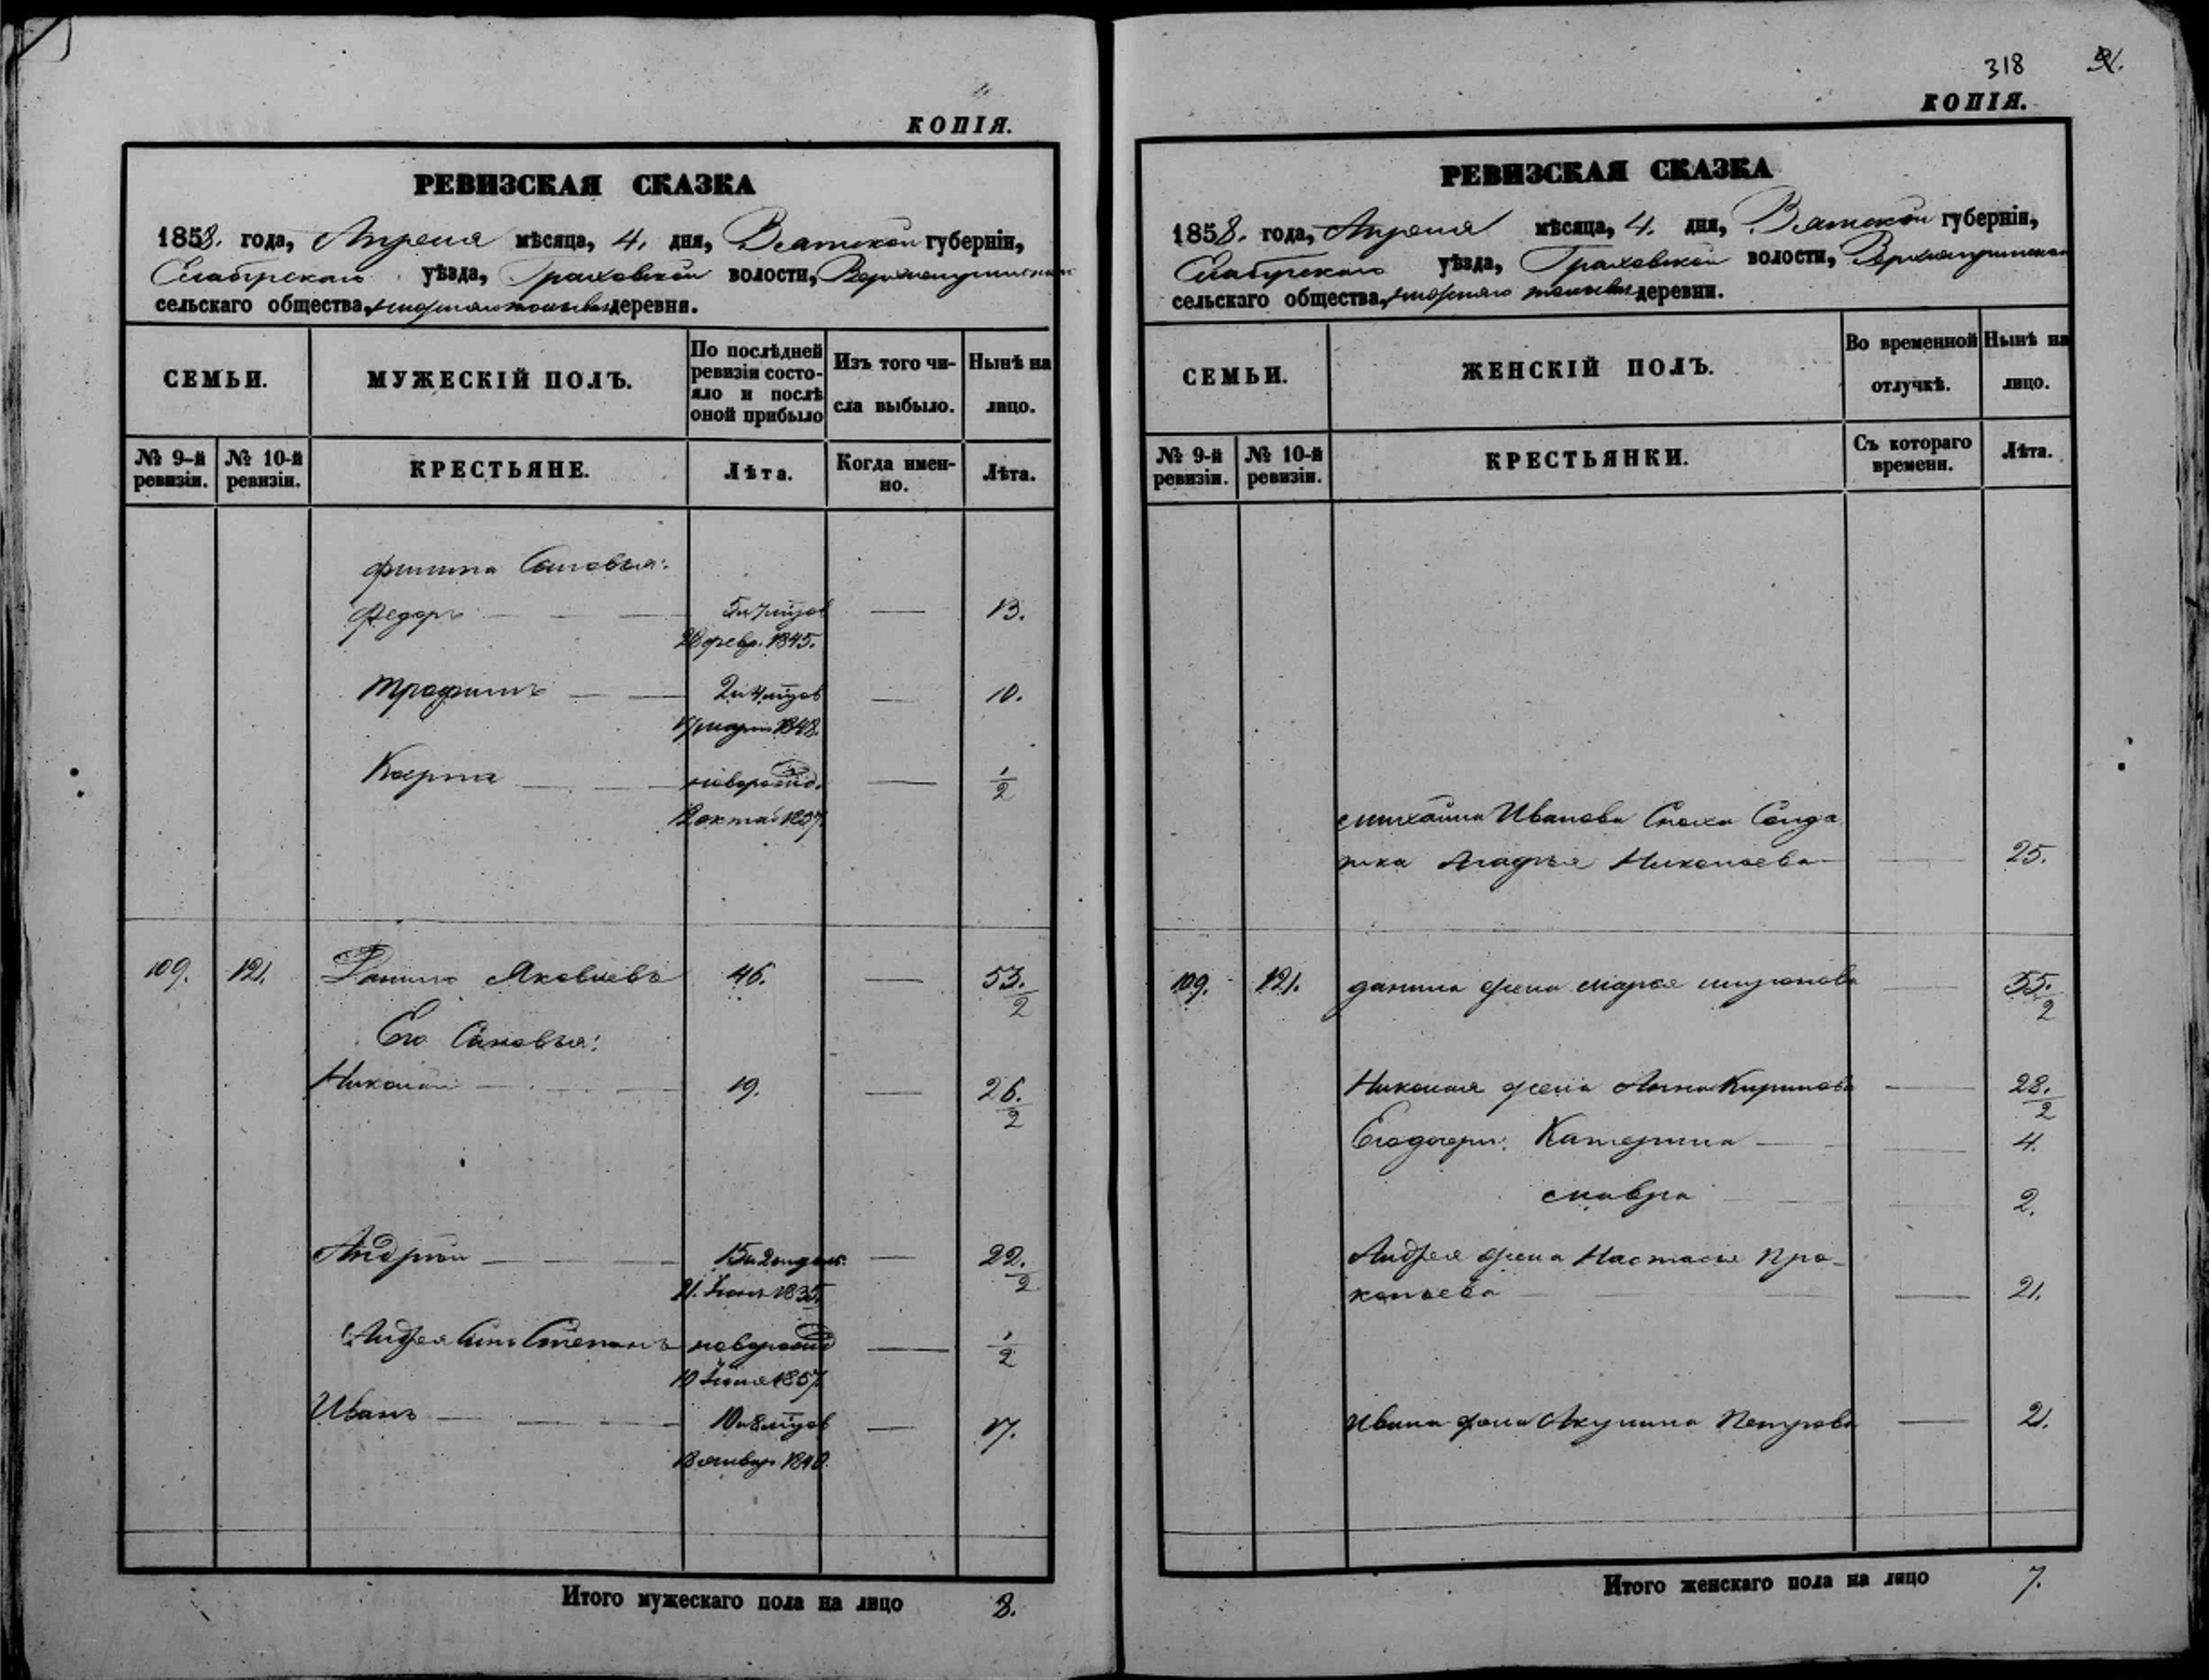 КОПІЯ.
РЕВИЗСКАЯ СКАЗКА
1858. года, Апреля мѣсяца, 4. дня, Вятской губерніи,
Елабугскаго уѣзда, Граховской волости,
сельскаго общества, деревни.
СЕМЬИ.
МУЖЕСКІЙ ПОЛЪ.
По послѣдней ревизіи состояло и послѣ оной прибыло
Изъ того числа выбыло.
Нынѣ на лицо.
№ 9-й ревизіи.
№ 10-й ревизіи.
КРЕСТЬЯНЕ.
Лѣта.
Когда именно.
Лѣта.
Филипа Сыновья:
Федоръ 5 и 7 мѣцов 13.
28 февр. 1845.
Трофимъ 2 и 4 мѣцов 10.
17 марта 1848.
Карпъ новорожд. 1/2
12 окта 1857.
109. 121. Данило Яковлевъ 46. 53. 2
Его Сыновья:
Николай 19. 26. 2
Андрей 15 и 22. 2
21. 1835.
Андрея Сынъ Степанъ новорожд 1/2
1857.
Иванъ 10 и 8 мѣцов 17.
январ 1840.
Итого мужескаго пола на лицо 8.
318
КОПІЯ.
РЕВИЗСКАЯ СКАЗКА
1858. года, Апреля мѣсяца, 4. дня, Вятской губерніи,
Елабугскаго уѣзда, Граховской волости,
сельскаго общества, деревни.
СЕМЬИ.
ЖЕНСКІЙ ПОЛЪ.
Во временной отлучкѣ.
Нынѣ на лицо.
№ 9-й ревизіи.
№ 10-й ревизіи.
КРЕСТЬЯНКИ.
Съ котораго времени.
Лѣта.
Михайла Иванова Сноха Солда
тка Агафья Николаева 25.
109. 121. Данила жена Марья 55. 2
Николая жена Анна Кирилова 28. 2
Его дочери: Катерина 4.
Мавра 2.
Андрея жена Настасья Про-
копьева 21.
Ивана жена Акулина Петрова 21.
Итого женскаго пола на лицо 7.